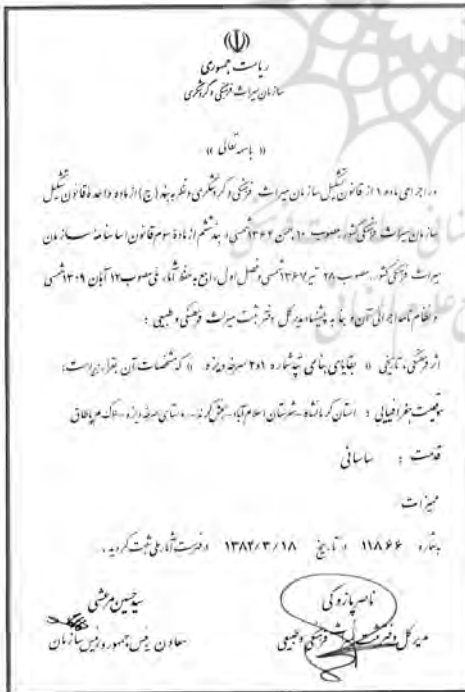 ریاست جمهوری
سازمان میراث فرهنگی و گردشگری
« باسمه تعالی »
در اجرای ماده ۱ از قانون تشکیل سازمان میراث فرهنگی و گردشگری و نظر به بند (ج) از ماده واحده قانون تشکیل
سازمان میراث فرهنگی کشور مصوب ۱۰ بهمن ۱۳۶۴ شمسی، بند ششم از مادهٔ سوم قانون اساسنامهٔ سازمان
میراث فرهنگی کشور، مصوب ۲۸ تیر ۱۳۶۷ شمسی و فصل اول، راجع به حفظ آثار ملی مصوب ۱۲ آبان ۱۳۰۹ شمسی
و نظام نامه اجرائی آن و بنا به پیشنهاد مدیر کل دفتر ثبت میراث فرهنگی و طبیعی :
اثر فرهنگی، تاریخی « بقایای بنای تپه شماره ۱ و ۲ سرخه دیزه » که مشخصات آن بقرار زیر است:
موقعیت جغرافیایی : استان کرمانشاه - شهرستان اسلام آباد - بخش کرند - روستای سرخه دیزه -
قدمت : ساسانی
میزات
بشماره ۱۱۸۶۶ در تاریخ ۱۳۸۴/۳/۱۸ در فهرست آثار ملی ثبت گردید .
ناصر پازوکی
سید حسین مرعشی
مدیر کل دفتر ثبت میراث فرهنگی و طبیعی
معاون رئیس جمهور و رئیس سازمان